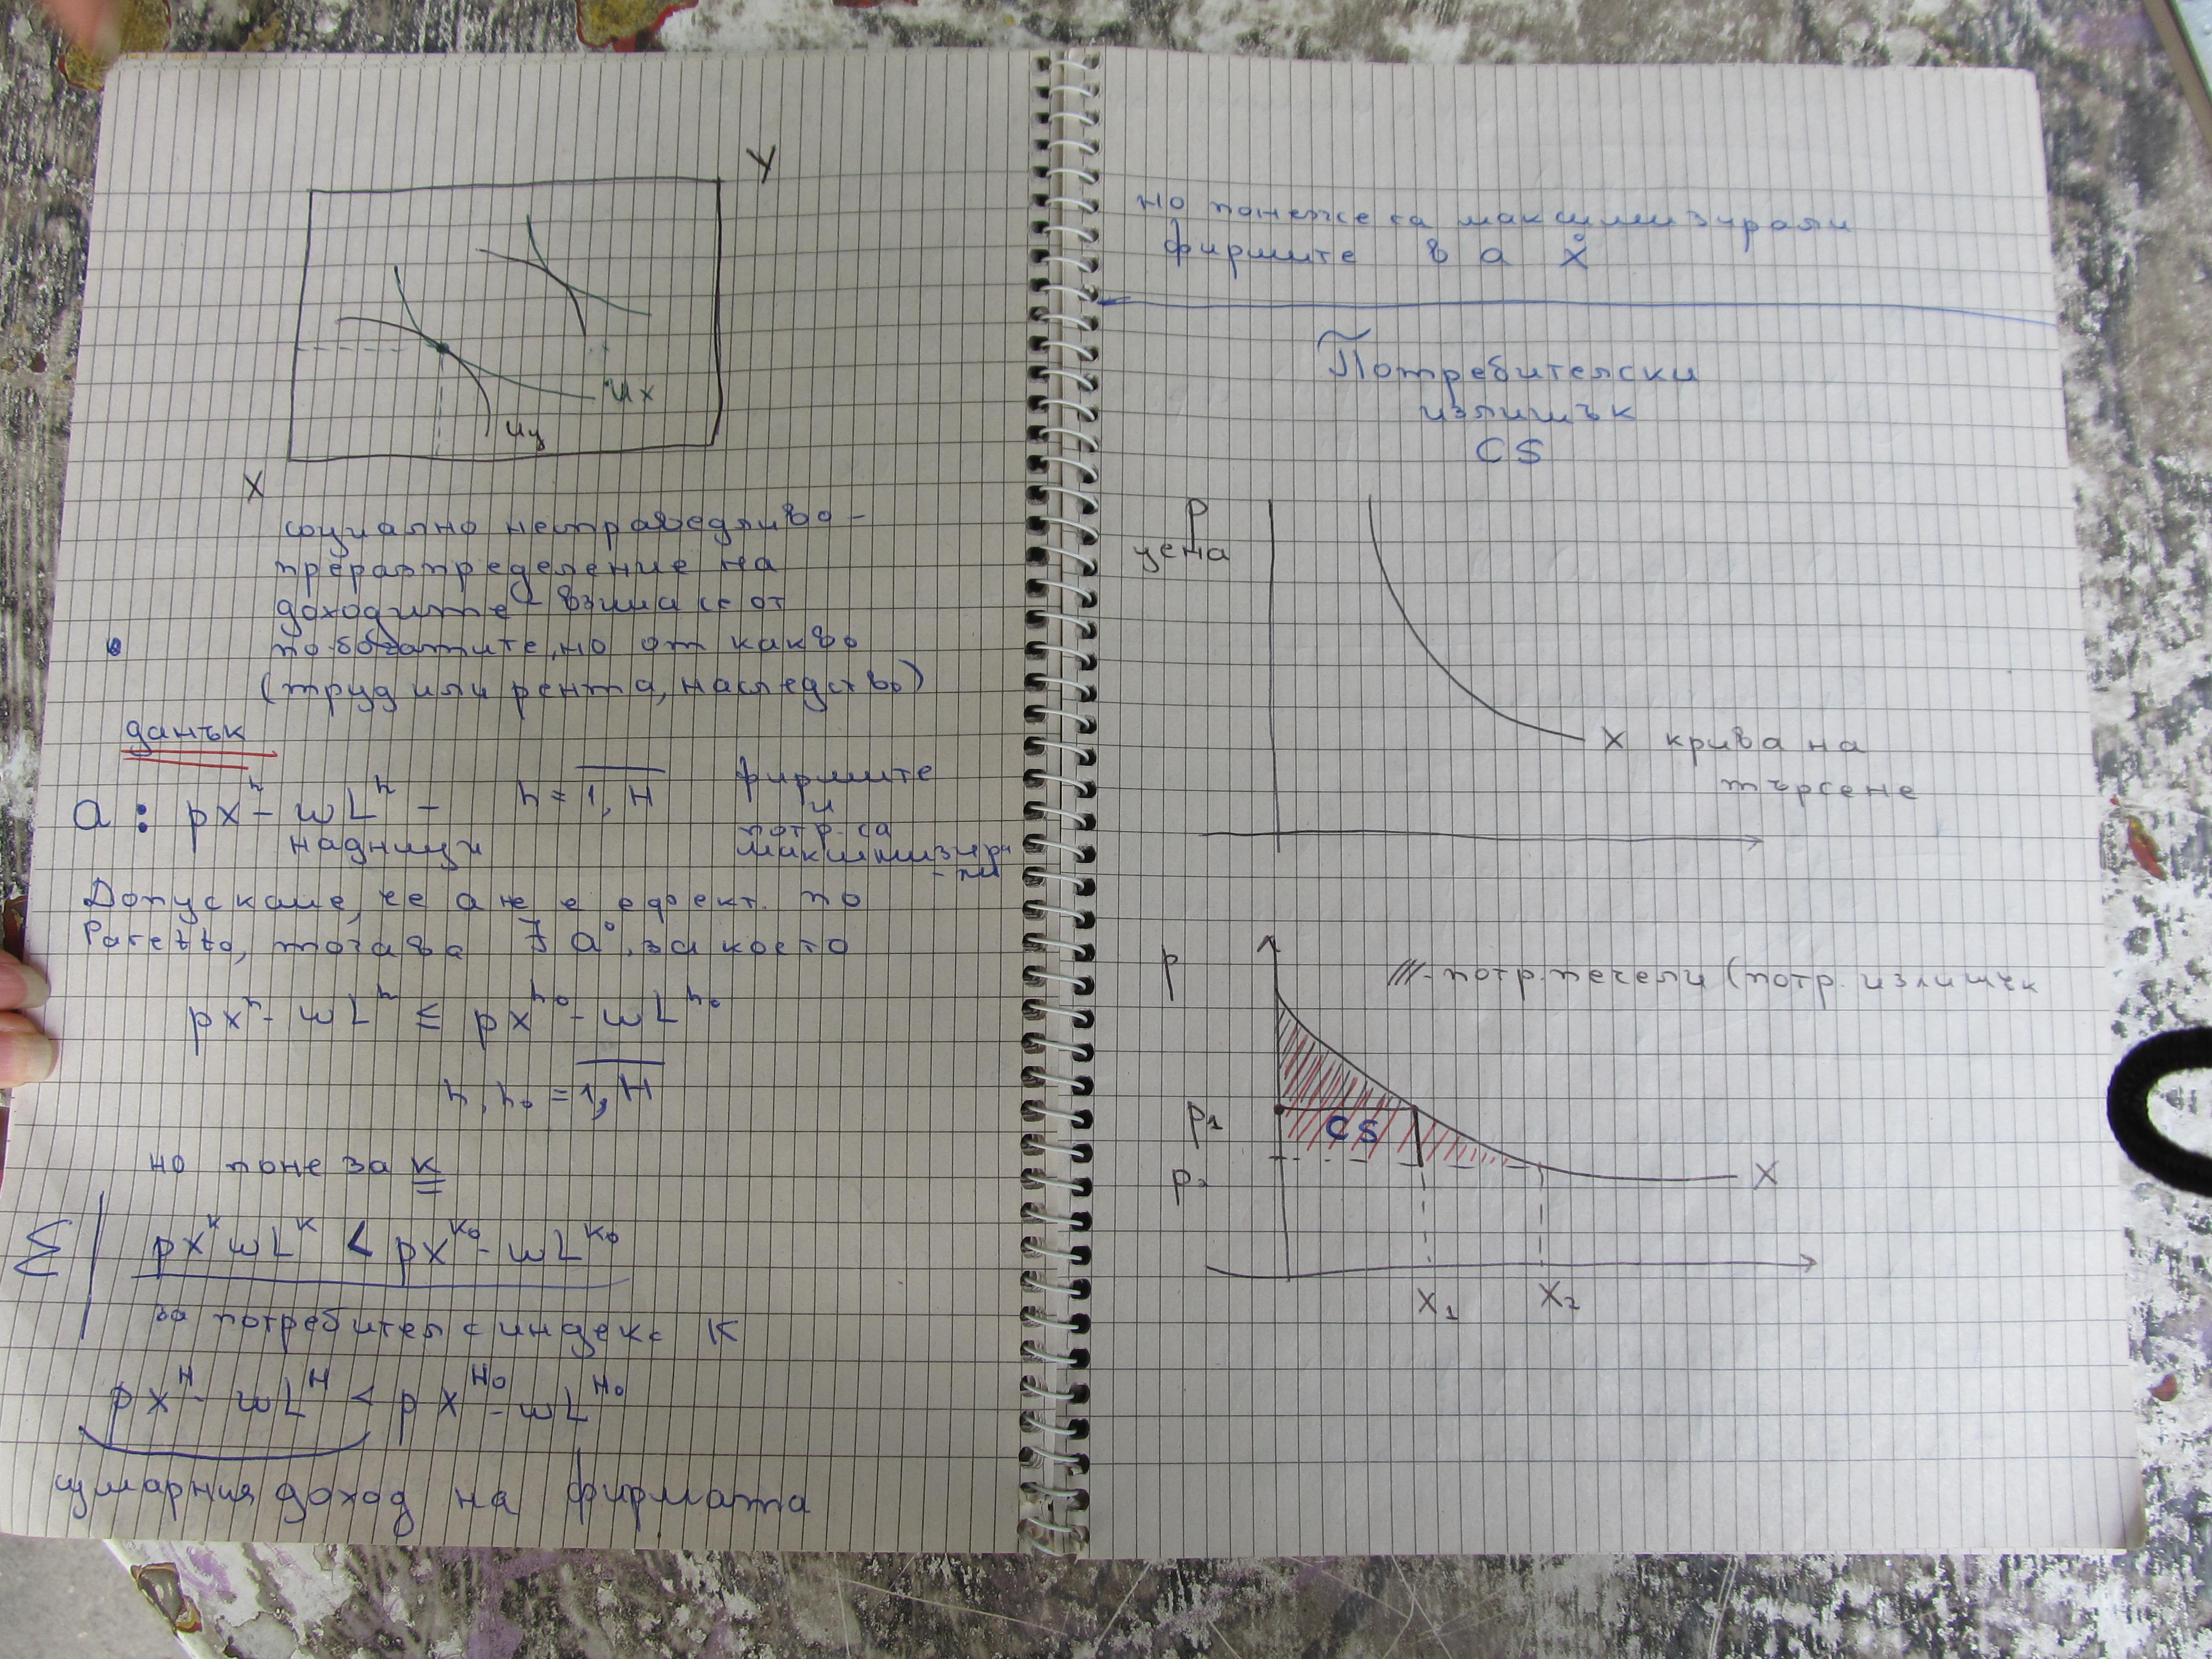 y
Ux
Uy
X
социално несправедливо -
преразпределение на
доходите взима се от
по-богатите, но от какво
(труд или рента, наследство)
данък
a : px^h - wL^h - h = 1, H фирмите
и
надници потр. са
максимизира
- ли
Допускаме, че а не е ефект. по
Paretto, тогава ∃ a°, за което
px^h - wL^h ≤ px^h° - wL^h°
h, h° = 1, H
но поне за k
Σ | px^k wL^k < px^k° - wL^k°
за потребител с индекс K
px^H - wL^H < px^H° - wL^H°
сумарния доход на фирмата
но понеже са максимизирали
фирмите в а x°
Потребителски
излишък
CS
P
цена
X крива на
търсене
P
/// - потр. печели (потр. излишък
P1
CS
P2
X
X1 X2